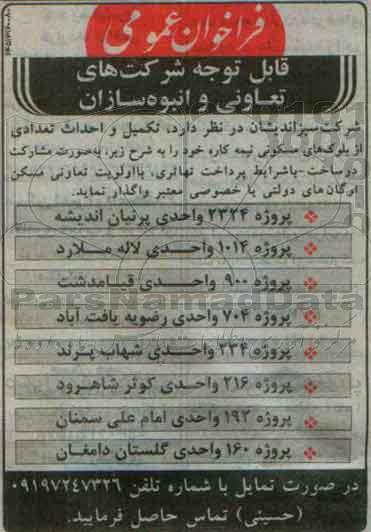 فراخوان عمومی
قابل توجه شرکت‌های
تعاونی و انبوه‌سازان
شرکت سبزاندیشان در نظر دارد، تکمیل و احداث تعدادی
از بلوک‌های مسکونی نیمه کاره خود را به شرح زیر، به‌صورت مشارکت
در ساخت - باشرایط پرداخت تهاتری، بااولویت تعاونی مسکن
ارگان‌های دولتی یا خصوصی معتبر واگذار نماید.
پروژه ۲۳۲۴ واحدی پرنیان اندیشه
پروژه ۱۰۱۴ واحدی لاله ملارد
پروژه ۹۰۰ واحدی قیامدشت
پروژه ۷۰۴ واحدی رضویه یافت آباد
پروژه ۳۳۴ واحدی شهاب پرند
پروژه ۲۱۶ واحدی کوثر شاهرود
پروژه ۱۹۲ واحدی امام علی سمنان
پروژه ۱۶۰ واحدی گلستان دامغان
در صورت تمایل با شماره تلفن ۰۹۱۹۷۲۴۷۳۲۶
(حسینی) تماس حاصل فرمایید.
ParsNamadData